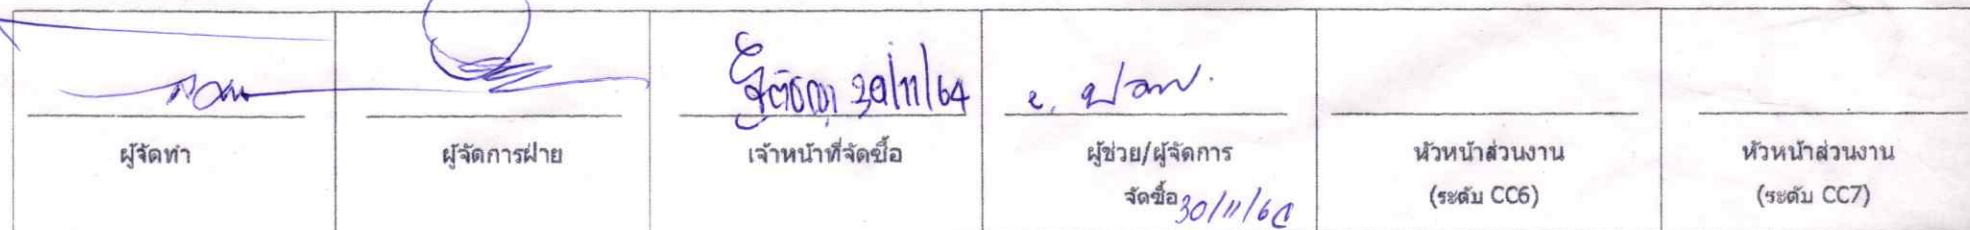 30/11/64
ผู้จัดทำ
ผู้จัดการฝ่าย
เจ้าหน้าที่จัดซื้อ
ผู้ช่วย/ผู้จัดการ
จัดซื้อ 30/11/64
หัวหน้าส่วนงาน
(ระดับ CC6)
หัวหน้าส่วนงาน
(ระดับ CC7)